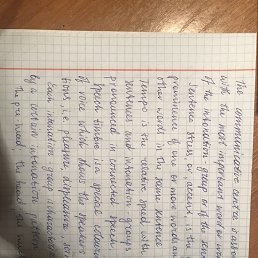 The communicative centre is associated
with the most important word or words
of the intonation group or of the sentence
Sentence stress, or accent, is the
prominence of one or more words among
other words in the same sentence
Tempo is the relative speed with
sentences and intonation groups
pronounced in connected speech.
Speech timbre is a special colouring
of voice which shows the speaker's
tions, i.e. pleasure, depression
Each intonation group characterized
by a certain intonation pattern
The pre-head, the head, the nucleus